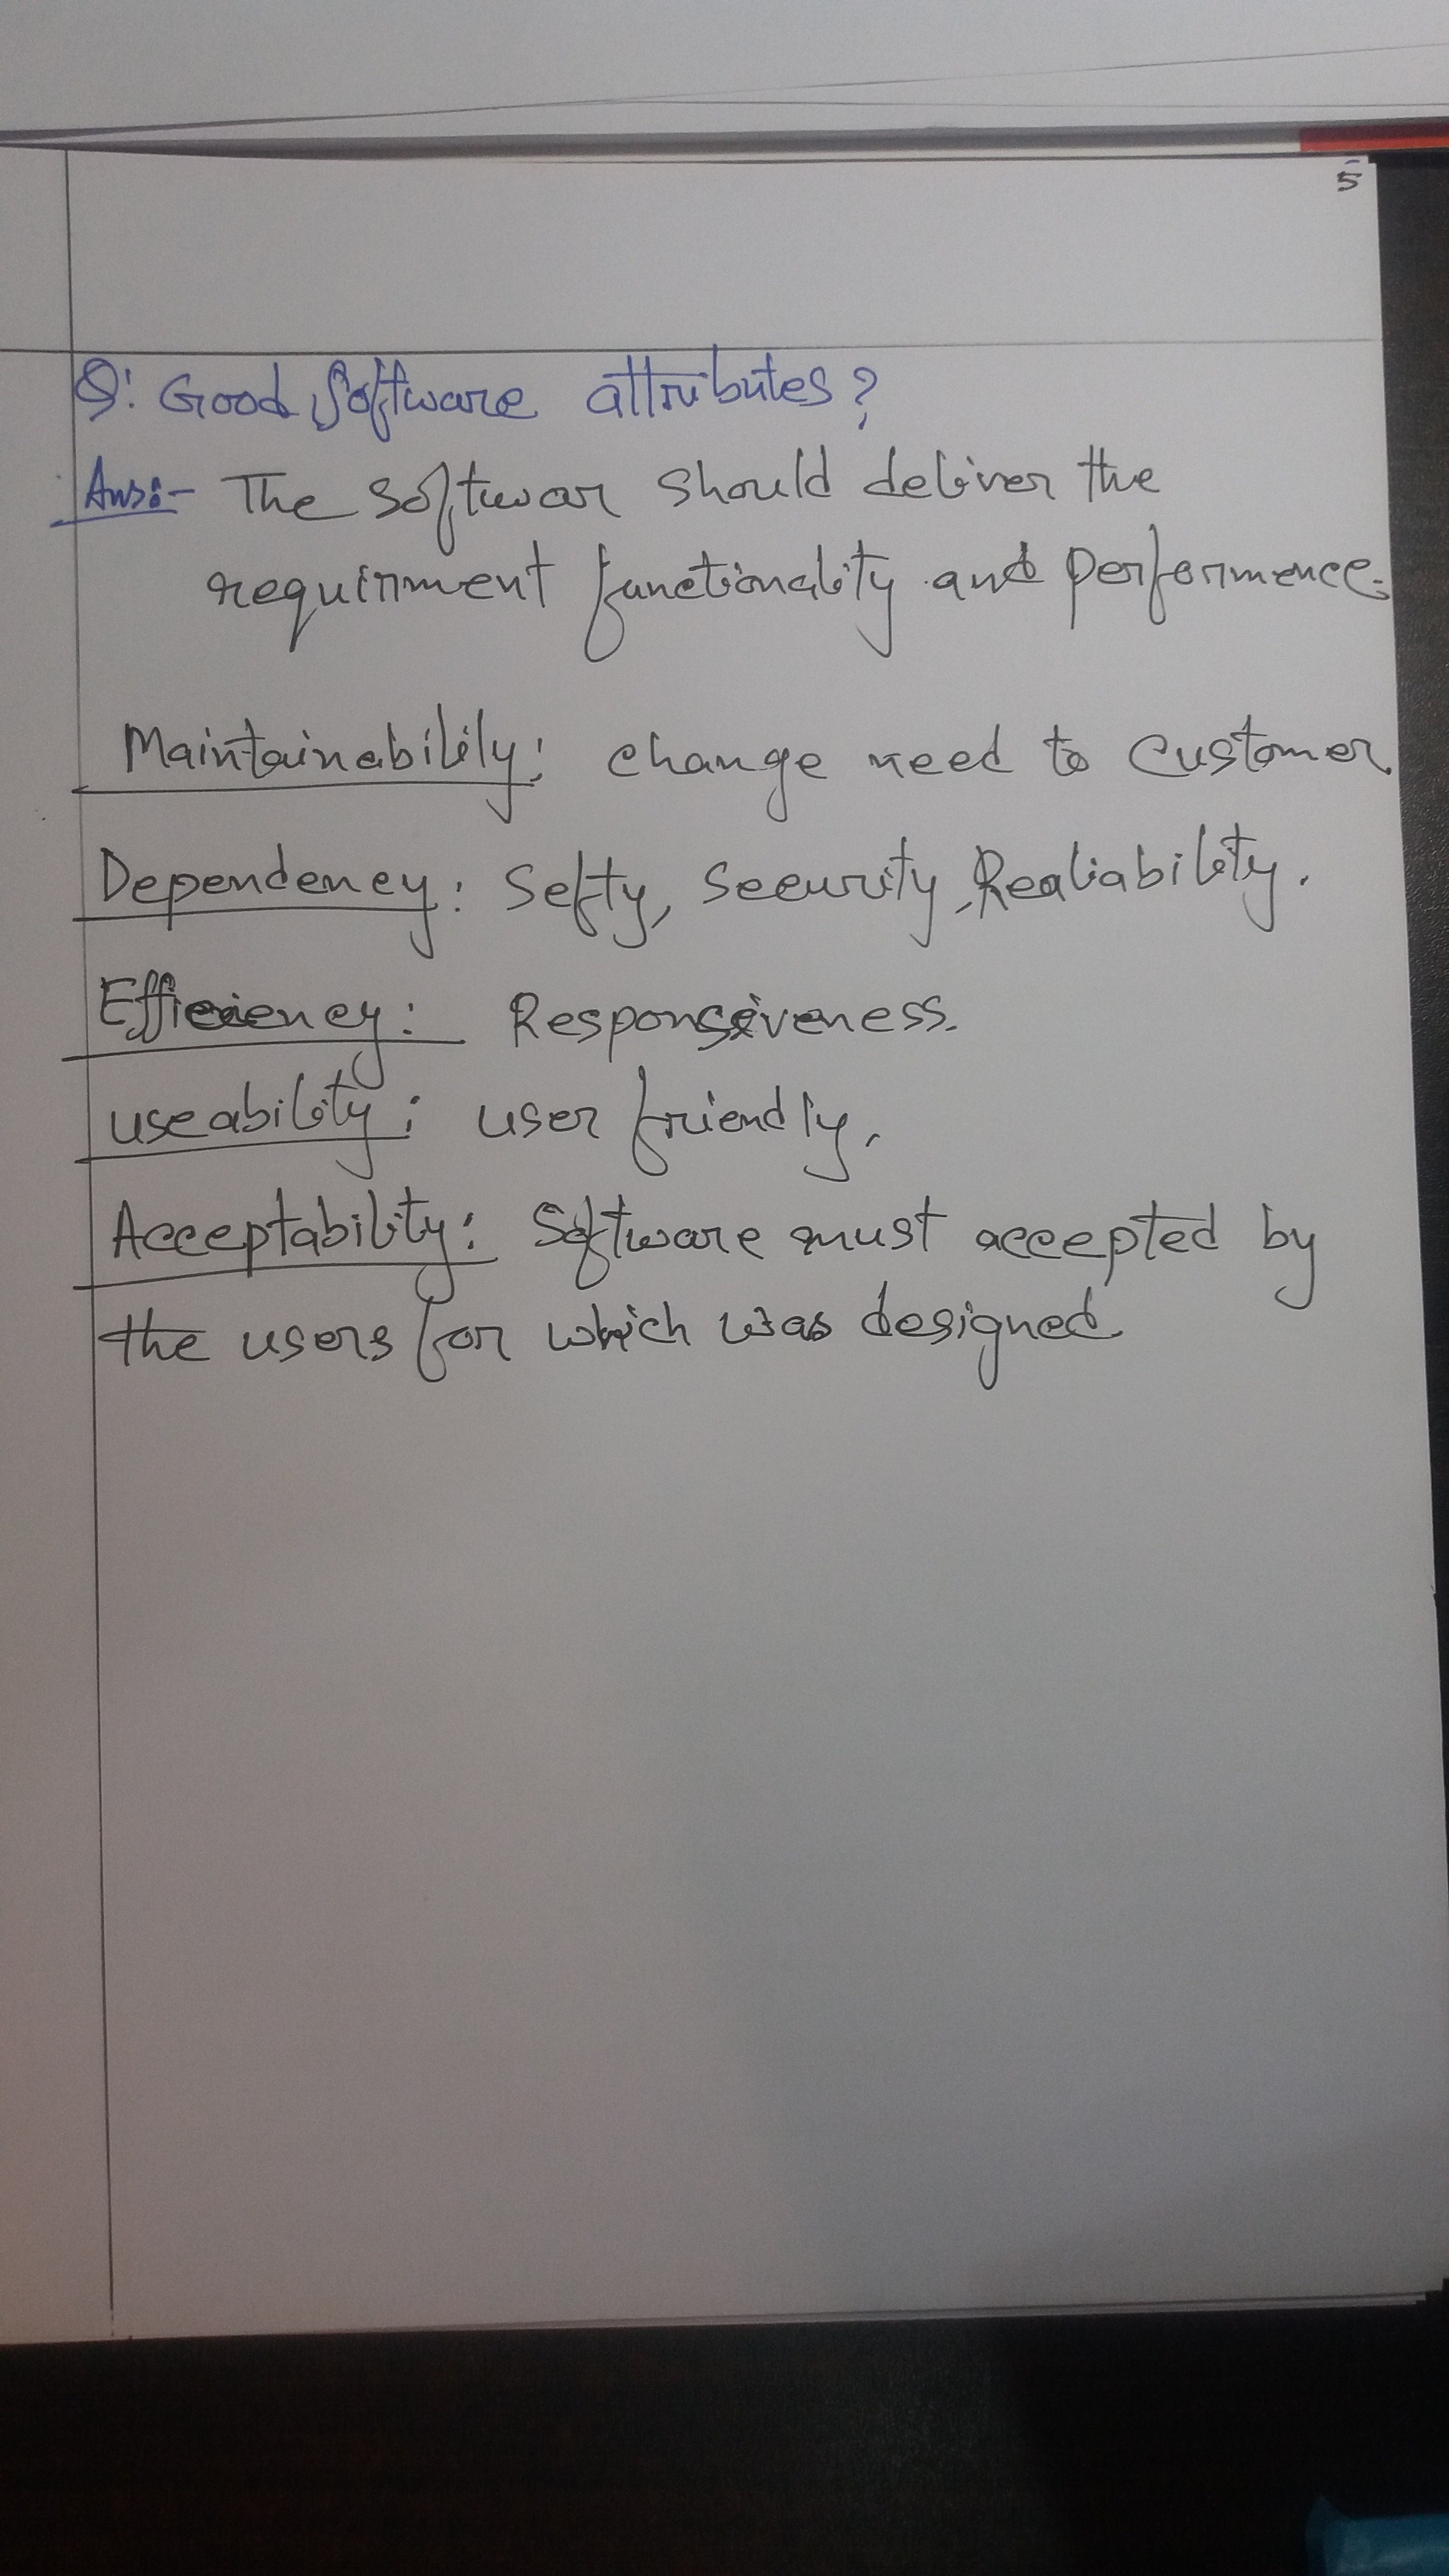 5
Q: Good Software attributes?
Ans:- The Softwar should deliver the
requirment functionality and performence.
Maintainability: change need to customer.
Dependency: Sefty, Security, Realiability.
Efficiency: Responsiveness.
useability: user friendly.
Acceptability: Software must accepted by
the users for which was designed